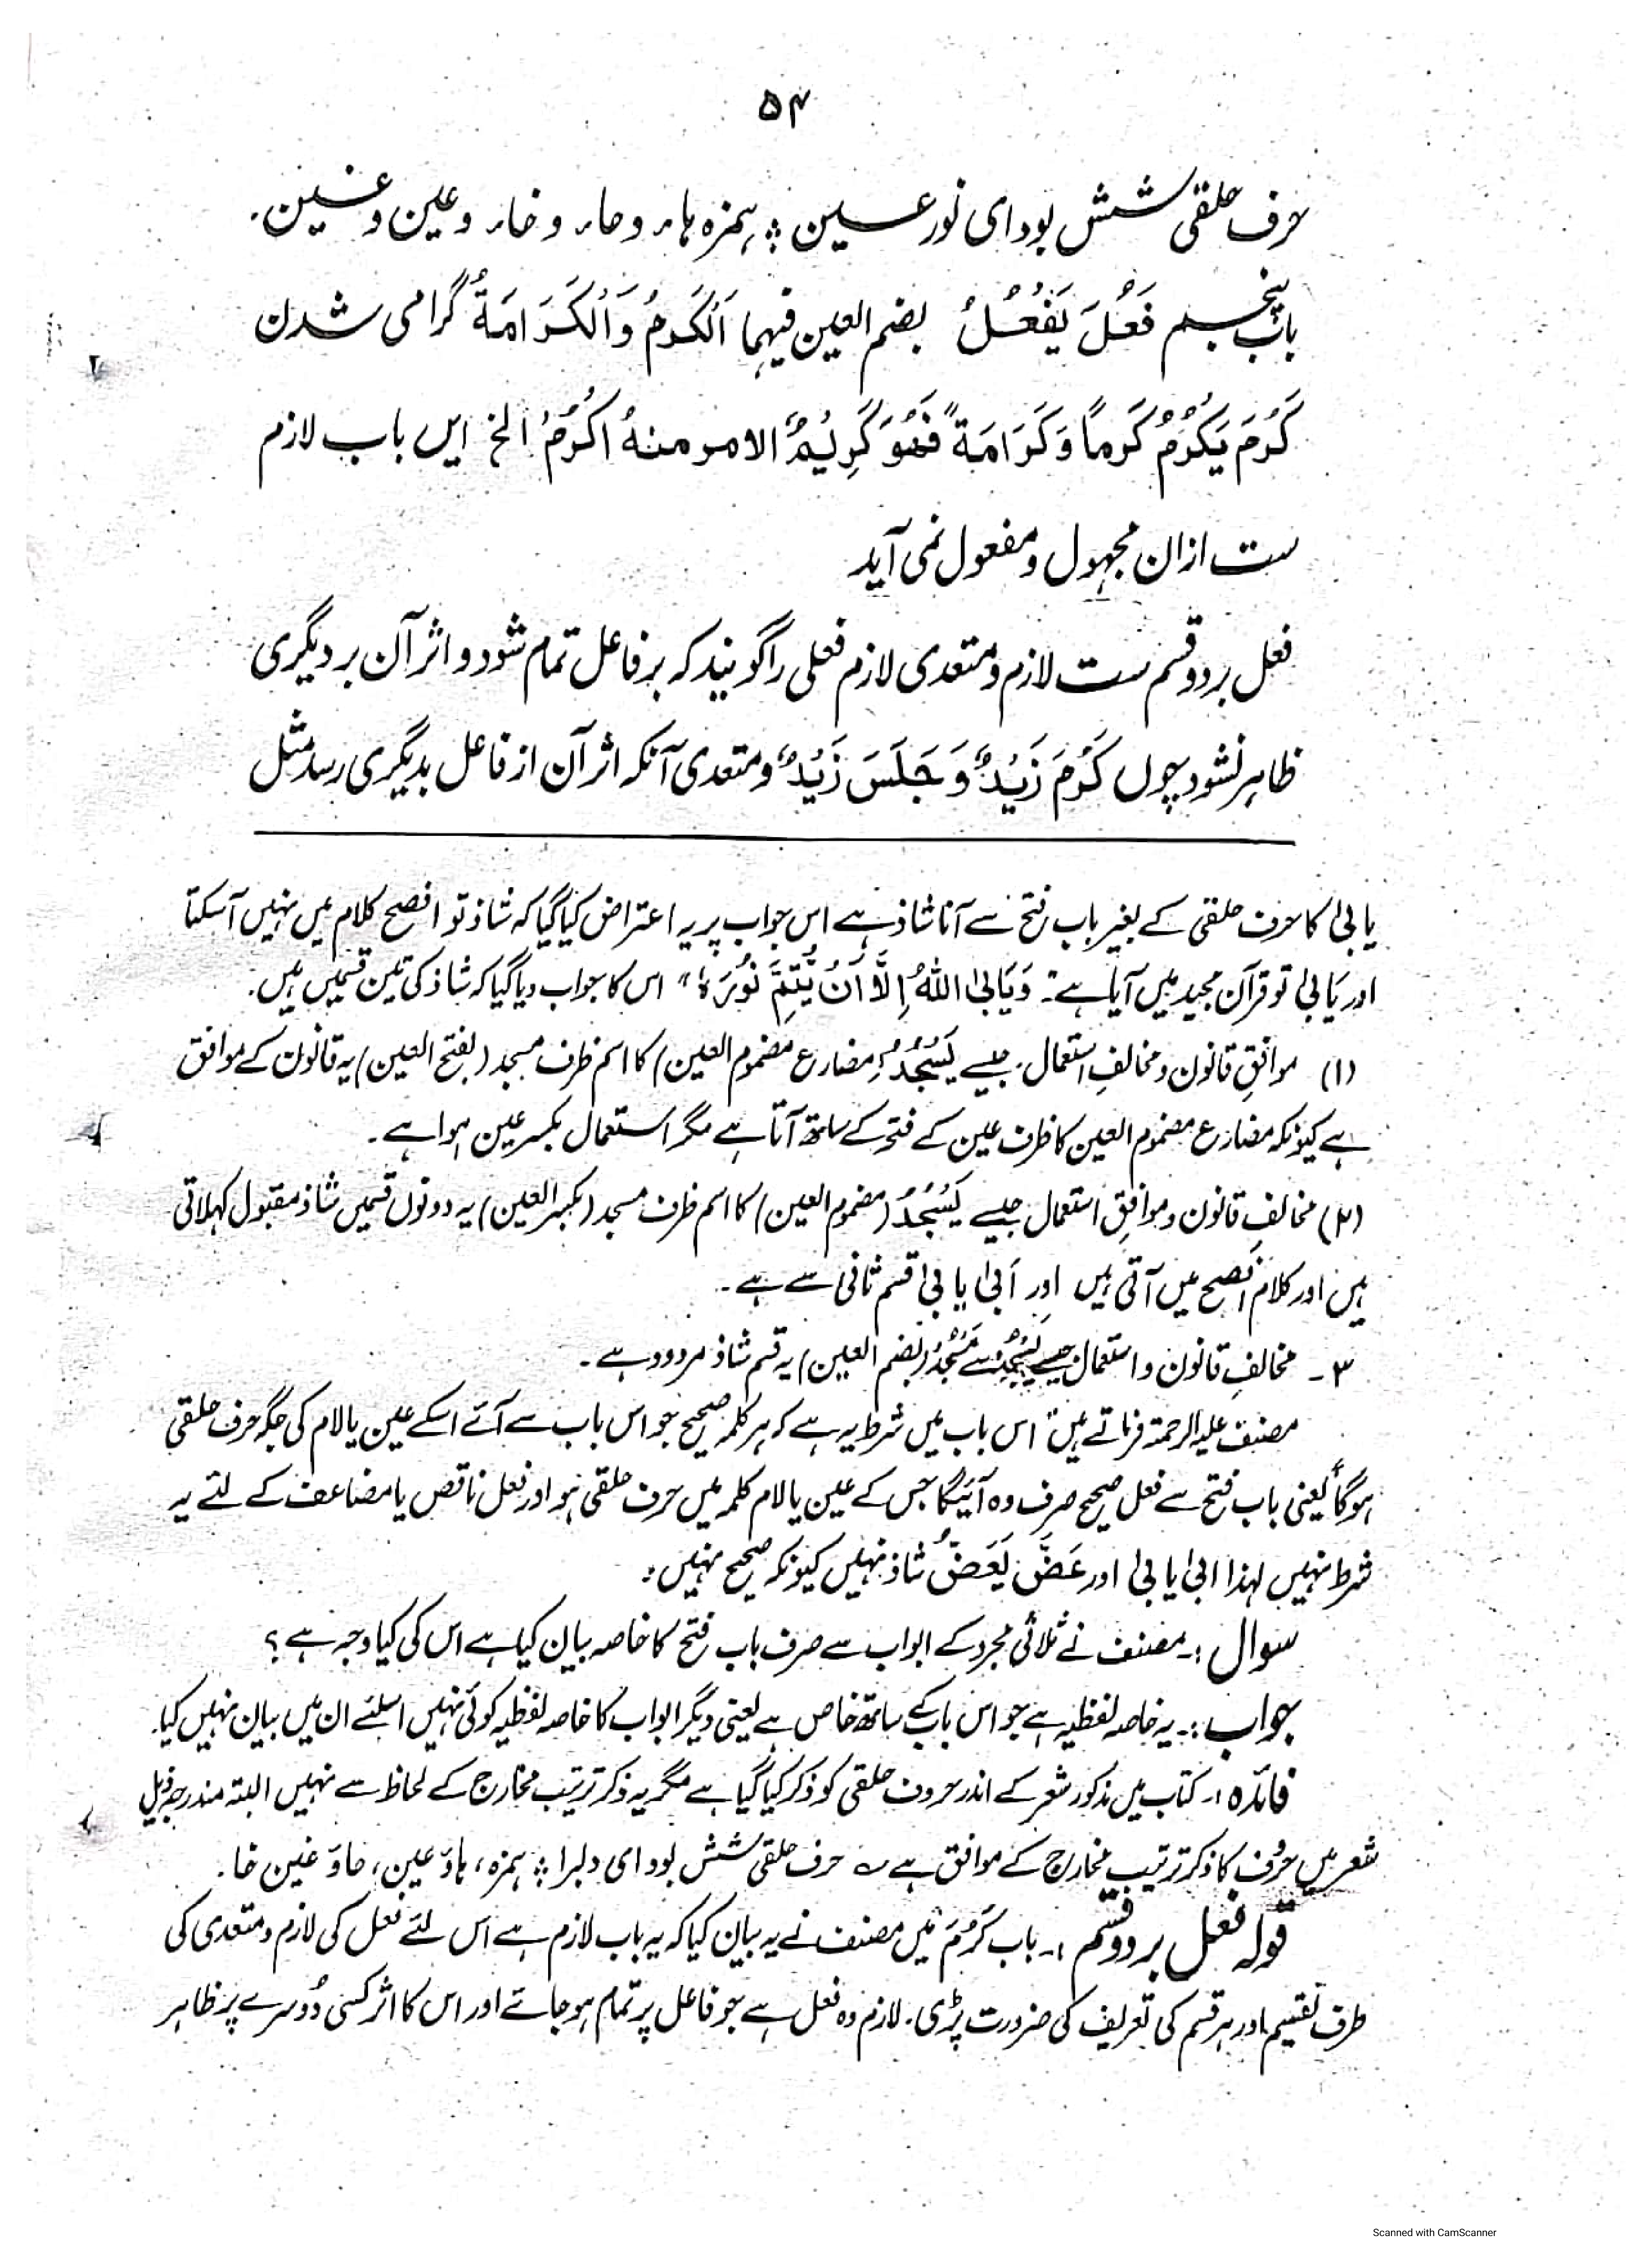 ۵۴
حرف حلقی شش بود ای نور عین ؛ ہمزہ ہاء و حاء و خاء و عین و غین۔
باب پنجم فَعُلَ یَفْعُلُ بضم العین فیہما اَلْکَرَمُ وَالْکَرَامَةُ گرامی شدن
کَرُمَ یَکْرُمُ کَرَماً وَکَرَامَةً فَهُوَ کَرِیْمٌ الامر منهُ اُکْرُمْ الخ ایں باب لازم
ست ازان مجہول و مفعول نمی آید
فعل بر دو قسم ست لازم و متعدی لازم فعلی را گویند کہ بر فاعل تمام شود و اثر آں بر دیگری
ظاہر نشود چوں کَرُمَ زَیْدٌ وَ جَلَسَ زَیْدٌ و متعدی آنکہ اثر آن از فاعل بدیگری رسد مثل
یابیٰ کا حرف حلقی کے بغیر باب فتح سے آنا شاذ ہے اس جواب پر یہ اعتراض کیا گیا کہ شاذ تو افصح کلام میں نہیں آسکتا
اور یَابیٰ تو قرآن مجید میں آیا ہے "۔ وَیَابَی اللهُ اِلَّا اَنْ یُّتِمَّ نُوْرَہٗ" اس کا جواب دیا گیا کہ شاذ کی تین قسمیں ہیں۔
(۱) موافقِ قانون و مخالفِ استعمال، جیسے یَسْجُدُ (مضارع مضموم العین) کا اسم ظرف مسجد (بفتح العین) یہ قانون کے موافق
ہے کیونکہ مضارع مضموم العین کا ظرف عین کے فتح کے ساتھ آتا ہے مگر استعمال بکسر عین ہوا ہے۔
(۲) مخالفِ قانون و موافقِ استعمال جیسے یَسْجُدُ (مضموم العین) کا اسم ظرف مسجد (بکسر العین) یہ دونوں قسمیں شاذ مقبول کہلاتی
ہیں اور کلام افصح میں آتی ہیں اور اَبیٰ یابیٰ قسم ثانی سے ہے۔
۳۔ مخالفِ قانون و استعمال جیسے یَسْجُدُ سے مَسْجُدُ (بضم العین) یہ قسم شاذ مردود ہے۔
مصنف علیہ الرحمۃ فرماتے ہیں "اس باب میں شرط یہ ہے کہ ہر کلمہ صحیح جو اس باب سے آئے اسکے عین یا لام کی جگہ حرف حلقی
ہوگا" یعنی باب فتح سے فعل صحیح صرف وہ آئیگا جس کے عین یا لام کلمہ میں حرف حلقی ہو اور فعل ناقص یا مضاعف کے لئے یہ
شرط نہیں لہذا ابیٰ یابیٰ اور عَضَّ یَعَضُّ شاذ نہیں کیونکہ صحیح نہیں :
سوال :۔ مصنف نے ثلاثی مجرد کے ابواب سے صرف باب فتح کا خاصہ بیان کیا ہے اس کی کیا وجہ ہے ؟
جواب :۔ یہ خاصہ لفظیہ ہے جو اس باب کے ساتھ خاص ہے یعنی دیگر ابواب کا خاصہ لفظیہ کوئی نہیں اسلئے ان میں بیان نہیں کیا۔
فائدہ :۔ کتاب میں مذکور شعر کے اندر حروف حلقی کو ذکر کیا گیا ہے مگر یہ ذکر ترتیب مخارج کے لحاظ سے نہیں البتہ مندرجہ ذیل
شعر میں حروف کا ذکر ترتیب مخارج کے موافق ہے ؎ حرف حلقی شش بود ای دلبرا ؛ ہمزہ، ہاؤ عین، حاؤ غین خا۔
قولہ فعل بر دو قسم :۔ باب کَرُمَ میں مصنف نے یہ بیان کیا کہ یہ باب لازم ہے اس لئے فعل کی لازم و متعدی کی
طرف تقسیم اور ہر قسم کی تعریف کی ضرورت پڑی۔ لازم وہ فعل ہے جو فاعل پر تمام ہو جائے اور اس کا اثر کسی دُوسرے پر ظاہر
Scanned with CamScanner